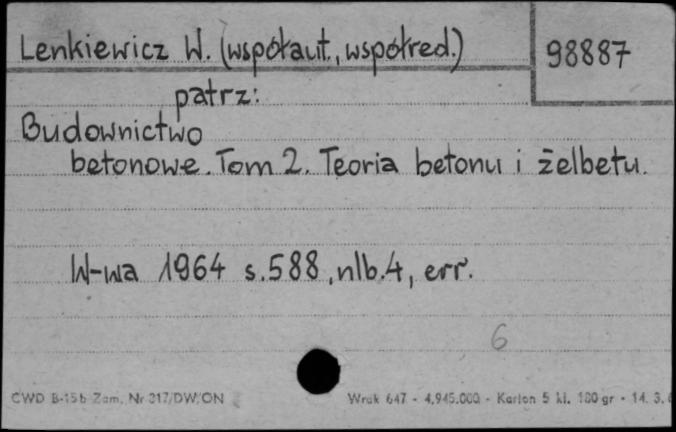 Lenkiewicz W. (współaut., współred.)
98887
patrz:
Budownictwo
betonowe. Tom 2. Teoria betonu i żelbetu.
W-wa 1964 s.588, nlb.4, err.
6
CWD B-15b Zam. Nr 317/DW/ON
Wrak 647 - 4.945.000 - Karton 5 kl. 180 gr - 14. 3.